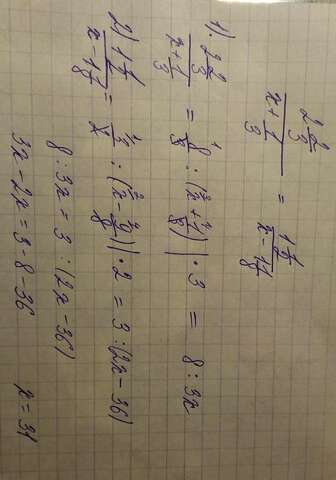 (2 2/3)/(x + 1/3) = (1 1/2)/(x - 1 1/8)
1). (2 2/3)/(x + 1/3) = 8/3 : (x + 1/3) | · 3 = 8 : 3x
2) (1 1/2)/(x - 1 1/8) = 3/2 : (x - 9/8) | · 2 = 3 : (2x - 36)
8 : 3x = 3 : (2x - 36)
3x - 2x = 3 - 8 - 36 x = 31